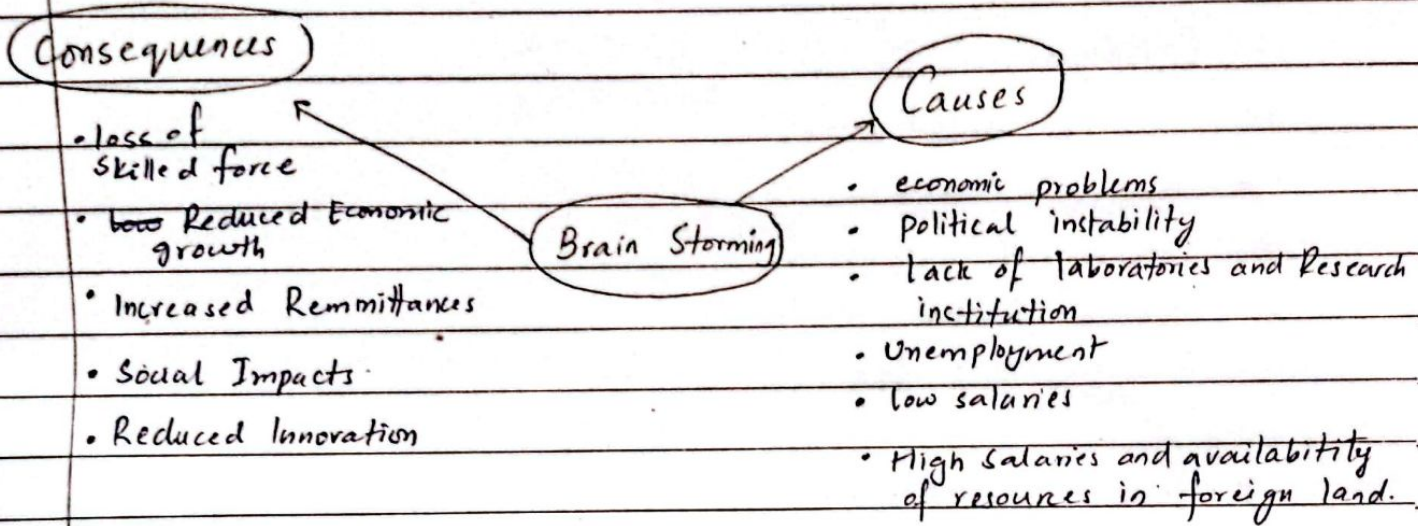 Consequences
• loss of
skilled force
• Low Reduced Economic
growth
• Increased Remmittances
• Social Impacts.
• Reduced Innovation
Brain Storming
Causes
• economic problems
• Political instability
• lack of laboratories and Research
institution
• Unemployment
• low salaries
• High salaries and availabitity
of resources in foreign land.